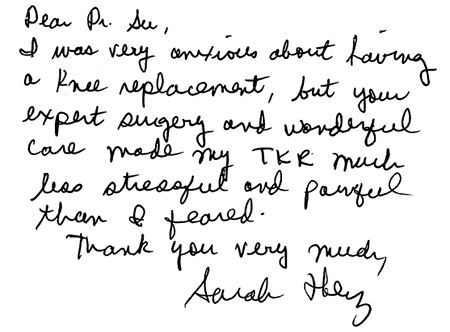 Dear Dr. Su,
I was very anxious about having
a knee replacement, but your
expert surgery and wonderful
care made my TKR much
less stressful and painful
than I feared.
Thank you very much,
Sarah